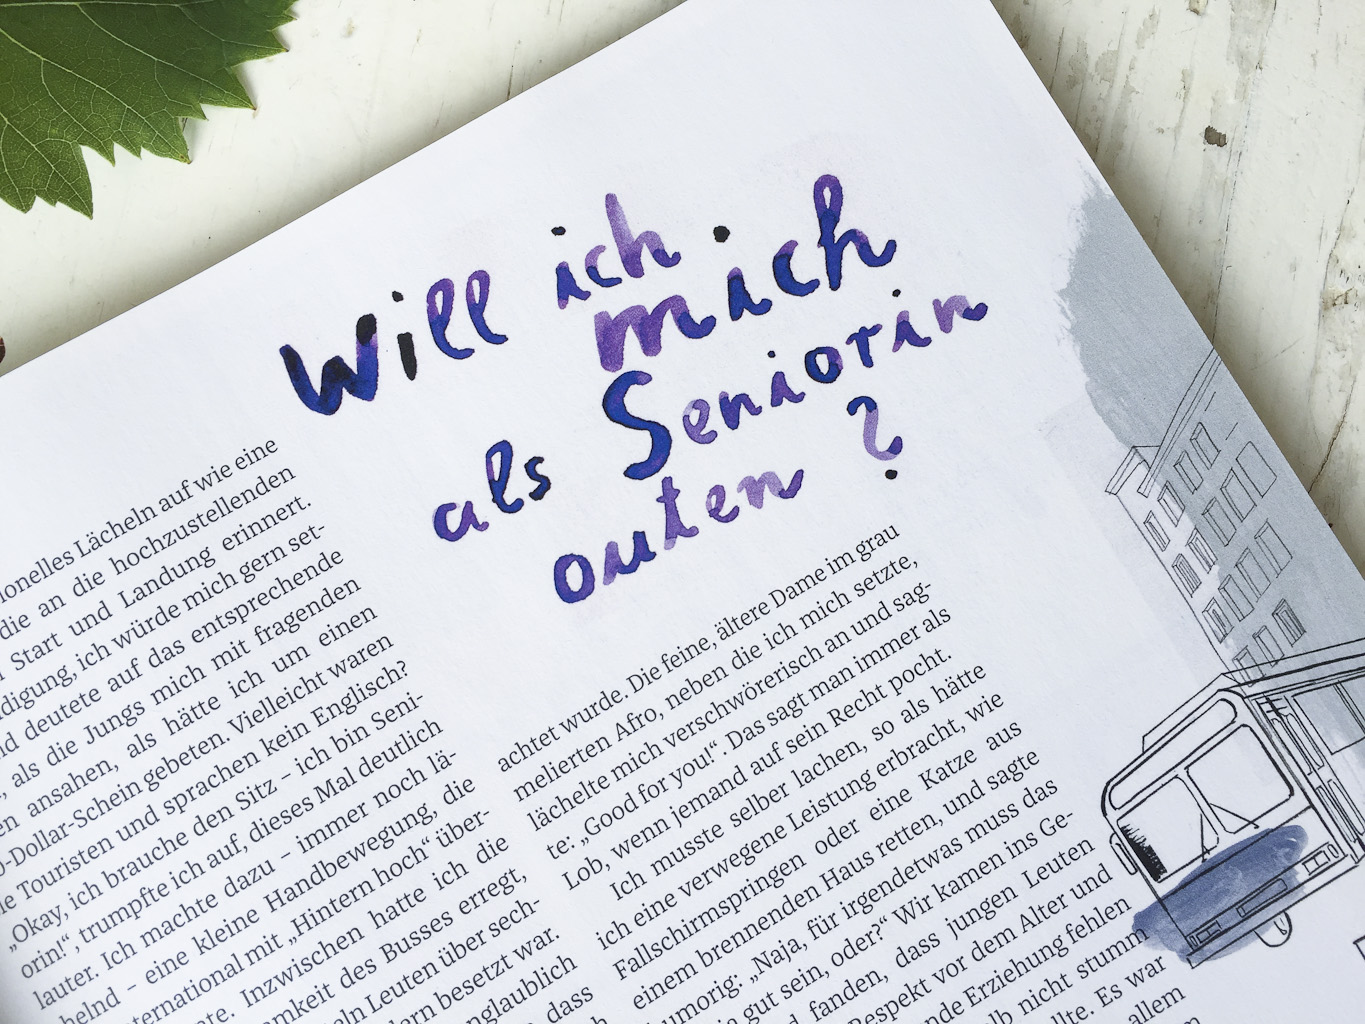 Will ich
mich
als Seniorin
outen?
ionelles Lächeln auf wie eine
die an die hochzustellenden
Start und Landung erinnert.
digung, ich würde mich gern set-
nd deutete auf das entsprechende
, als die Jungs mich mit fragenden
en ansahen, als hätte ich um einen
0-Dollar-Schein gebeten. Vielleicht waren
ie Touristen und sprachen kein Englisch?
„Okay, ich brauche den Sitz – ich bin Seni-
orin!“, trumpfte ich auf, dieses Mal deutlich
lauter. Ich machte dazu – immer noch lä-
helnd – eine kleine Handbewegung, die
ternational mit „Hintern hoch“ über-
te. Inzwischen hatte ich die
amkeit des Busses erregt,
eln Leuten über sech-
dern besetzt war.
nglaublich
dass
achtet wurde. Die feine, ältere Dame im grau
melierten Afro, neben die ich mich setzte,
lächelte mich verschwörerisch an und sag-
te: „Good for you!“. Das sagt man immer als
Lob, wenn jemand auf sein Recht pocht.
Ich musste selber lachen, so als hätte
ich eine verwegene Leistung erbracht, wie
Fallschirmspringen oder eine Katze aus
einem brennenden Haus retten, und sagte
umorig: „Naja, für irgendetwas muss das
gut sein, oder?“ Wir kamen ins Ge-
fanden, dass jungen Leuten
Respekt vor dem Alter und
nde Erziehung fehlen
b nicht stumm
llte. Es war
allem